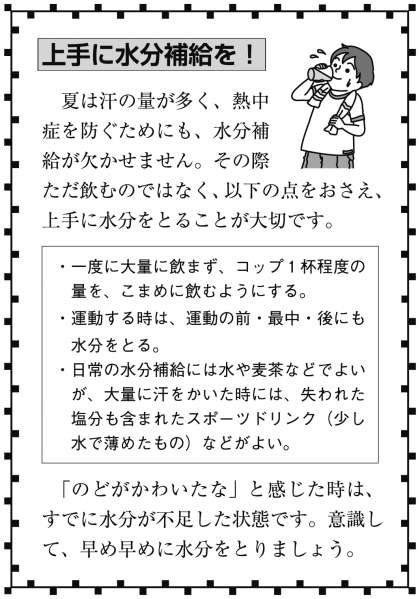 上手に水分補給を！
　夏は汗の量が多く、熱中
症を防ぐためにも、水分補
給が欠かせません。その際
ただ飲むのではなく、以下の点をおさえ、
上手に水分をとることが大切です。
・一度に大量に飲まず、コップ１杯程度の
量を、こまめに飲むようにする。
・運動する時は、運動の前・最中・後にも
水分をとる。
・日常の水分補給には水や麦茶などでよい
が、大量に汗をかいた時には、失われた
塩分も含まれたスポーツドリンク（少し
水で薄めたもの）などがよい。
　「のどがかわいたな」と感じた時は、
すでに水分が不足した状態です。意識し
て、早め早めに水分をとりましょう。